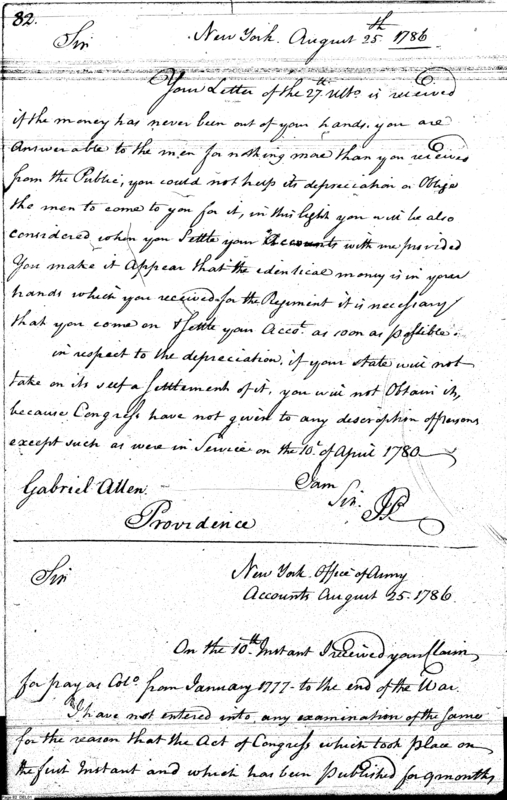 82.
New York August 25th 1786
Sir
Your Letter of the 27th Ulto. is received
if the money has never been out of your hands. you are
answerable to the men for nothing more than you received
from the Public, you could not help its depreciation or Oblige
the men to come to you for it, in this light you will be also
considered when you Settle your Accounts with me provided
You make it appear that the identical money is in your
hands which you received for the Regiment it is necessary
that you come on & Settle your Accots. as soon as possible.
in respect to the depreciation, if your state will not
take on its self a Settlement of it, you will not Obtain it,
because Congress have not given to any description of persons
except such as were in Service on the 10th of April 1780
I am
Gabriel Allen.
Sir.
JP
Providence
New York. Office of Army
Sir
Accounts August 25. 1786.
On the 10th Instant I received your Claim,
for pay as Colo. from January 1777 - to the end of the War.
I have not entered into, any examination of the same
for the reason that the Act of Congress which took place on
the first Instant and which has been published for 9 months